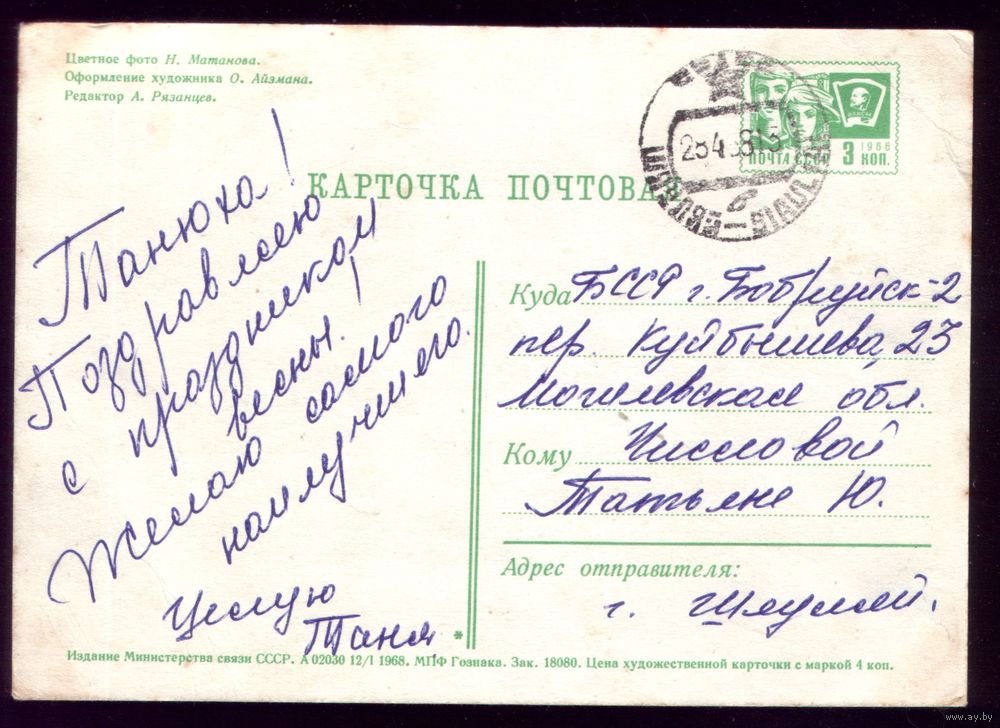 Цветное фото Н. Матанова.
Оформление художника О. Айзмана.
Редактор А. Рязанцев.
ПОЧТА СССР 3 КОП. 1966
КАРТОЧКА ПОЧТОВАЯ
Танюха!
Поздравляю
с праздником
весны!
Желаю самого
наилучшего.
Целую
Таня.
Куда БССР г. Бобруйск-2
пер. Куйбышева, 23
Могилевская обл.
Кому Числовой
Татьяне Ю.
Адрес отправителя:
г. Шяуляй.
*
Издание Министерства связи СССР. А 02030 12/I 1968. МПФ Гознака. Зак. 18080. Цена художественной карточки с маркой 4 коп.
www.ay.by